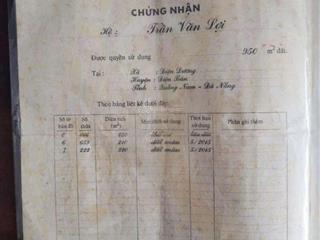 CHỨNG NHẬN
Hộ : Trần Văn Lợi
Được quyền sử dụng 950 m² đất.
Tại : Xã : Điện Dương
Huyện : Điện Bàn
Tỉnh : Quảng Nam - Đà Nẵng
Theo bảng liệt kê dưới đây:
Số tờ bản đồ Số thửa Diện tích (m²) Mục đích sử dụng Thời hạn sử dụng Phần ghi thêm
6 659 210 5/2045
7 222 5/2045